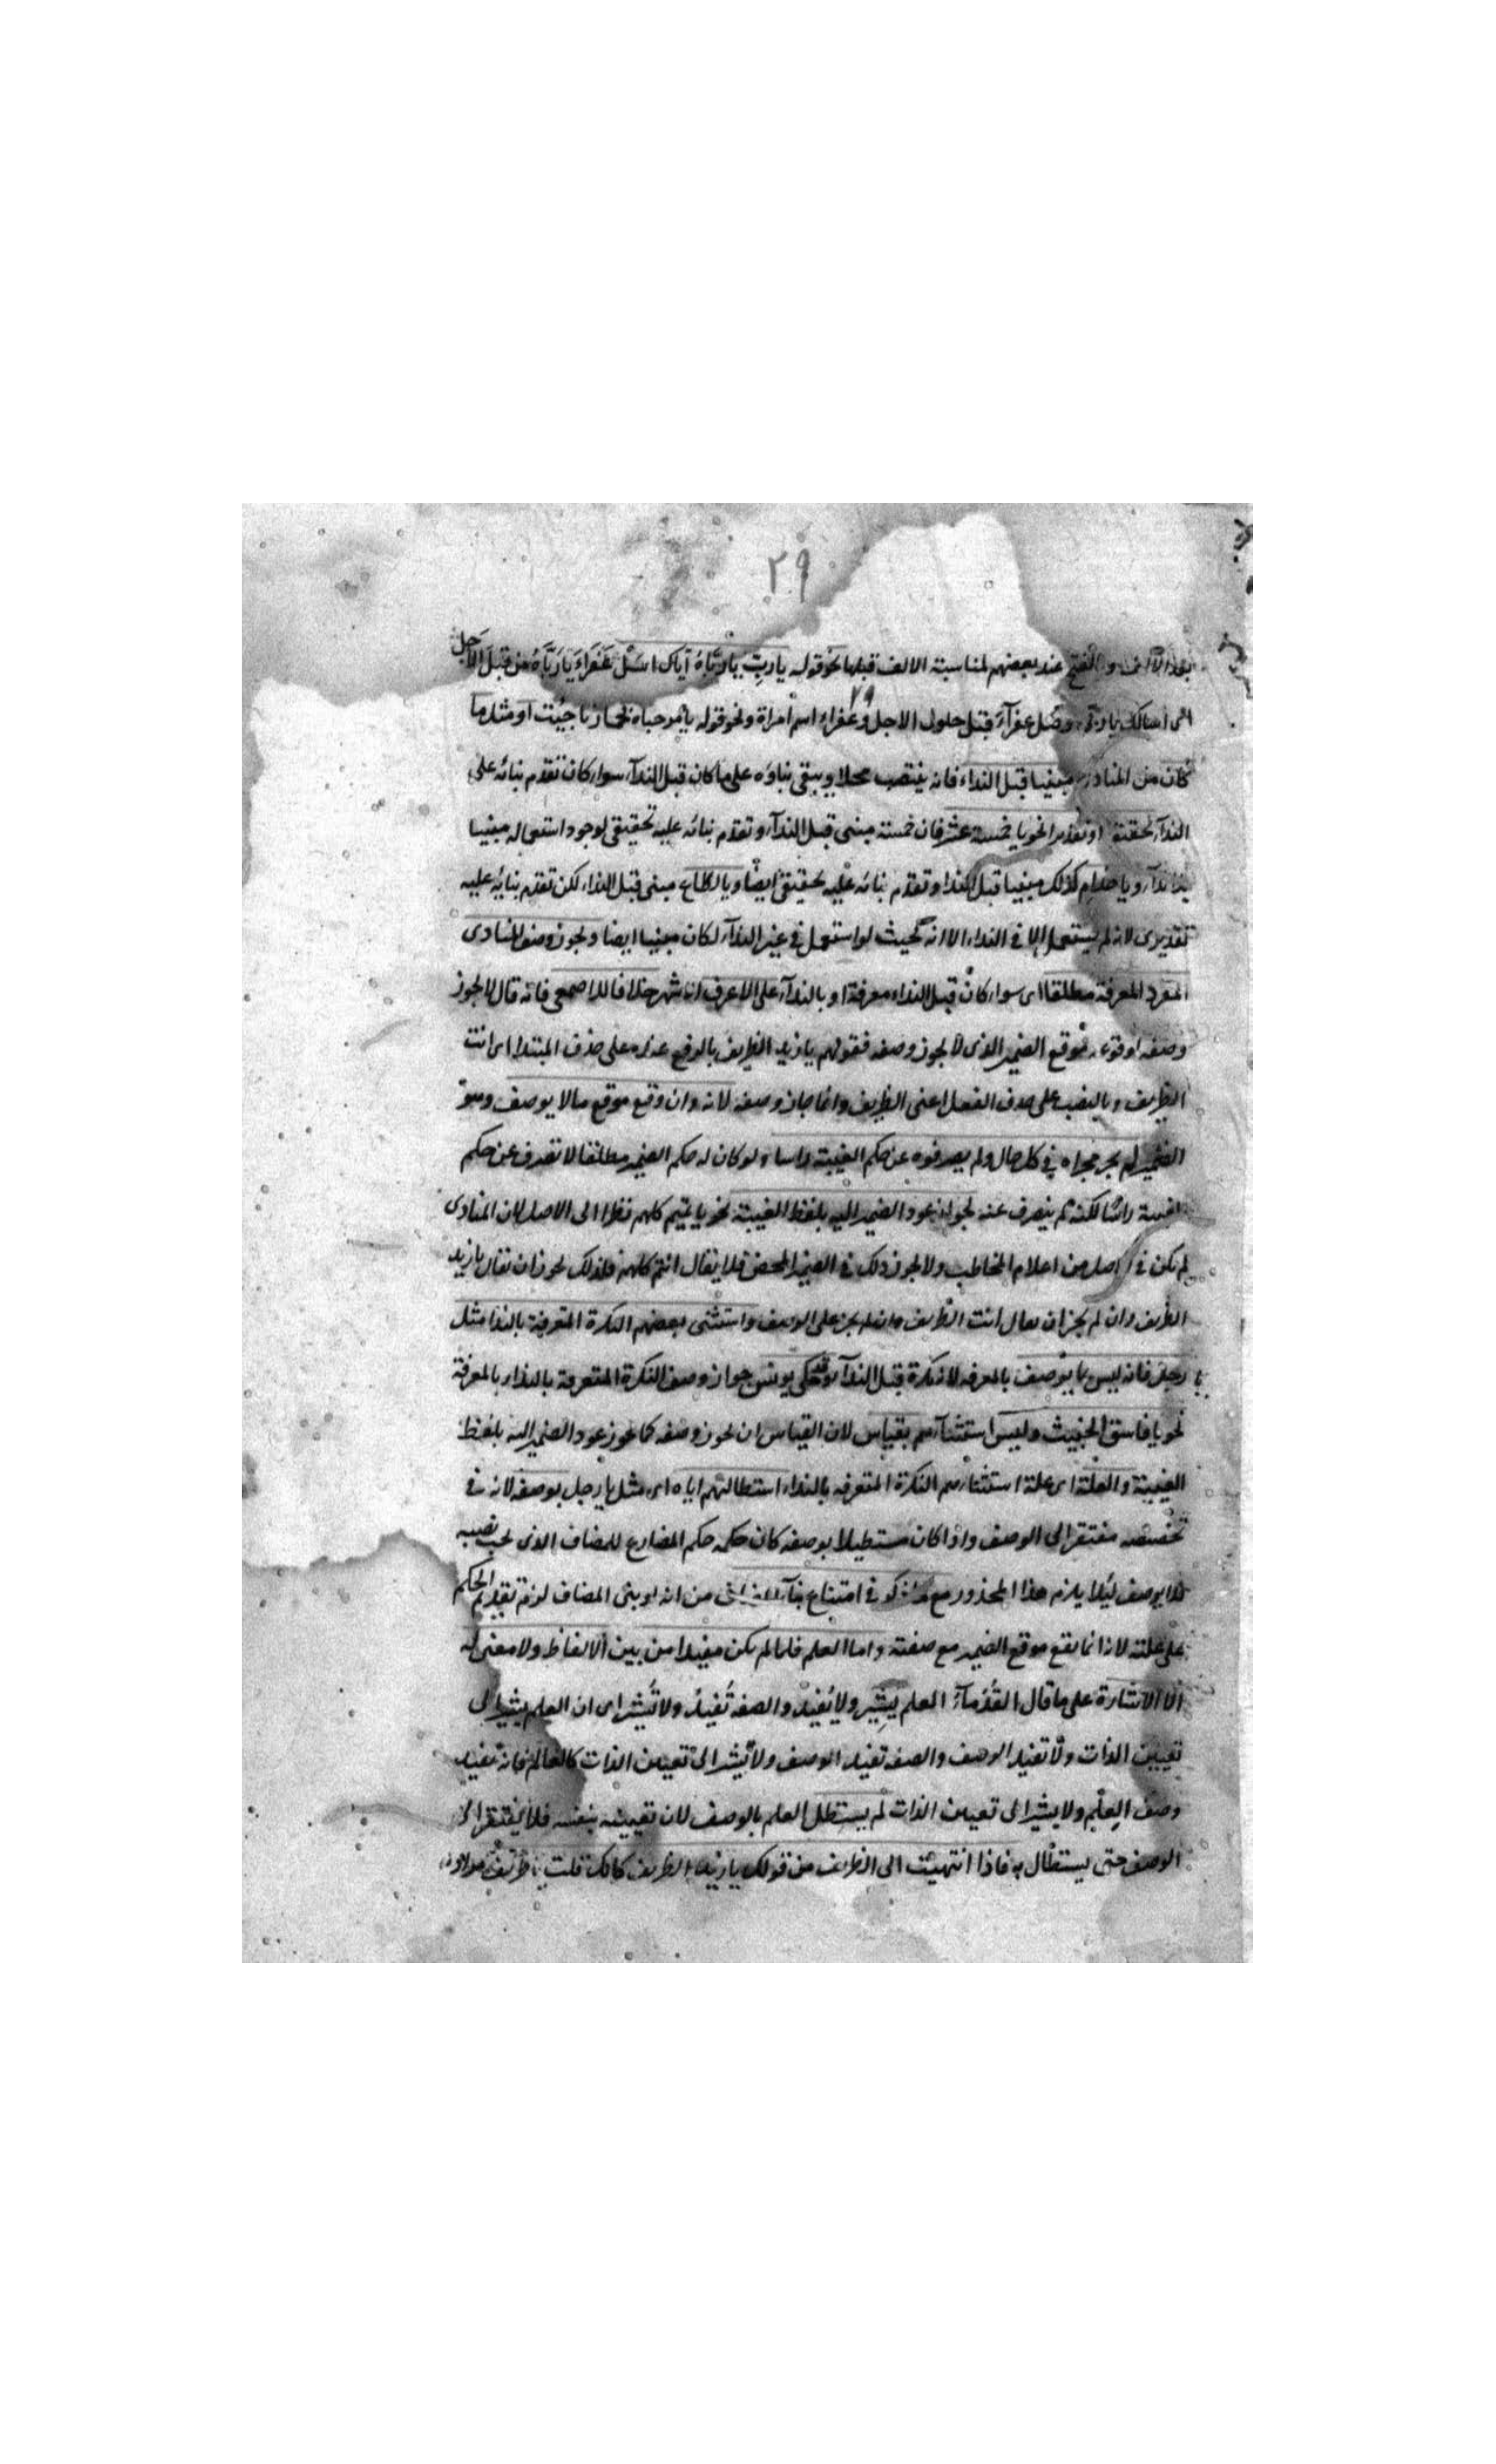 ٢٩
بعد الالف والفتح عند بعضهم لمناسبة الالف قبلها نحو قوله يا رب يا رباه اياك اسل عفراء يا رباه من قبل الاجل
اى اسالك يا وصل عفرآء قبل حلول الاجل وعفراء اسم امراة ونحو قوله يا مرحباه بحمار ناجيت او مثل ما
٢٩
كان من المنادى مبنيا قبل النداء فانه ينتصب محلا ويبقى بناؤه على ما كان قبل الندآء سواء كان تقدم بنائه على
الندآء تحقيقة او تقديرا نحو يا خمسة عشر فان خمسة مبنى قبل الندآء وتقدم بنائه عليه تحقيقى لوجود استعماله مبنيا
ويا حذام كذلك مبنيا قبل الندا وتقدم بنائه عليه تحقيقى ايضا ويا لكاع مبنى قبل النداء لكن تقدم بنائه عليه
تقديرى لانه لم يستعمل الا فى النداء الا انه بحيث لو استعمل فى غير الندآء لكان مبنيا ايضا ويجوز وصف المنادى
المفرد المعرفة مطلقا اى سواء كان قبل النداء معرفة او بالندآء على الاعرف الاشهر خلافا للاصمعى فانه قال لا يجوز
وصفه لوقوعه موقع الضمير الذى لا يجوز وصفه فقولهم يا زيد الظريف بالرفع عنده على حذف المبتدا اى انت
الظريف وبالنصب على حذف الفعل اعنى الظريف وانما جاز وصفه لانه وان وقع موقع ما لا يوصف وهو
الضمير لم يجر مجراه فى كل حال ولم يصرفوه عن حكم الغيبة راسا ولو كان له حكم الضمير مطلقا لانصرف عن حكم
الغيبة راسا لكنه لم ينصرف عنه لجواز عود الضمير اليه بلفظ الغيبة نحو يا تميم كلهم نظرا الى الاصل لان المنادى
لم يكن فى الاصل من اعلام المخاطب ولا يجوز ذلك فى الضمير المحض فلا يقال انتم كلهم فلذلك يجوز ان يقال يا زيد
الظريف وان لم يجز ان يقال انت الظريف على الوصف واستثنى بعضهم النكرة المتعرفة بالندا مثل
يا رجل فانه ليس مما يوصف بالمعرفه لانه نكرة قبل الندآء وقد حكى يونس جواز وصف النكرة المتعرفة بالنداء بالمعرفة
نحو يا فاسق الخبيث وليس استثنآءهم بقياس لان القياس ان يجوز وصفه كما يجوز عود الضمير اليه بلفظ
الغيبة والعلة اى علة استثنائهم النكرة المتعرفه بالنداء استطالتهم اياه اى مثل يا رجل بوصفه لانه فى
تخصيصه مفتقر الى الوصف واذا كان مستطيلا بوصفه كان حكمه حكم المضارع للمضاف الذى يجب نصبه
فلا يوصف ليلا يلزم هذا المحذور مع ما ذكر فى امتناع بنآء المضاف من انه لو بنى المضاف لزم تقديم الحكم
على علته لانه انما يقع موقع الضمير مع صفته واما العلم فلما لم يكن مفيدا من بين الالفاظ ولا معنى له
الا الاشارة على ما قال القدمآء العلم يشير ولا يفيد والصفه تفيد ولا تشير اى ان العلم يشير الى
تعيين الذات ولا تفيد الوصف والصفه تفيد الوصف ولا تشير الى تعيين الذات كالعالم فانه تفيد
وصف العلم ولا يشير الى تعيين الذات لم يستطل العلم بالوصف لان تعيينه بنفسه فلا يفتقر الى
الوصف حتى يستطال به فاذا انتهيت الى الظريف من قولك يا زيد الظريف كانك قلت يا ظريف